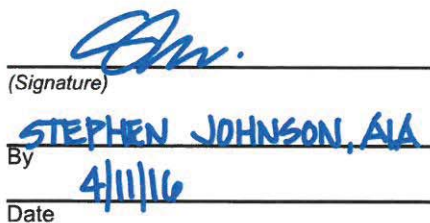 (Signature)
STEPHEN JOHNSON, AIA
By
4/11/16
Date